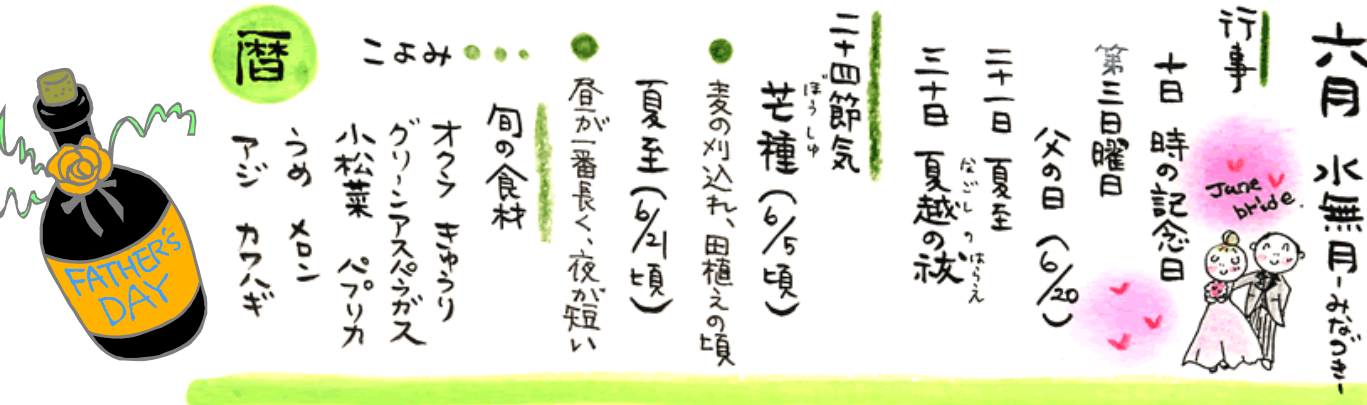 六月 水無月-みなづき-
行事
十日 時の記念日
第三日曜日
父の日(6/20)
二十一日 夏至
三十日 夏越の祓
なごしのはらえ
二十四節気
芒種(6/5頃)
ぼうしゅ
麦の刈込れ、田植えの頃
夏至(6/21頃)
昼が一番長く、夜が短い
旬の食材
オクラ きゅうり
グリーンアスパラガス
小松菜 パプリカ
うめ メロン
アジ カワハギ
こよみ
暦
June
bride.
FATHER'S
DAY